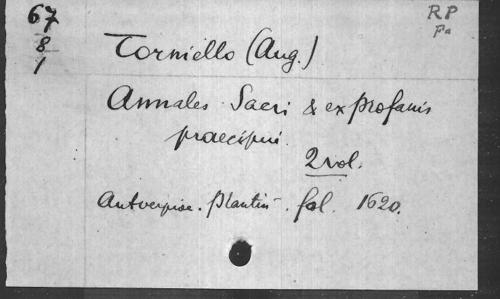 67
8
1
RP
Fa
Torniello (Aug.)
Annales Sacri & ex profanis
praecipui.
2 vol.
Antverpiae. Plantin. fol. 1620.